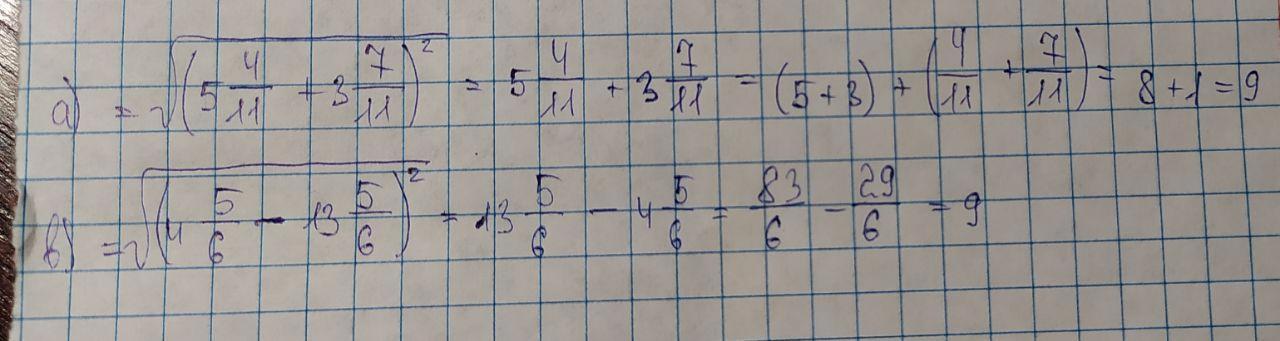 а) = √(5 4/11 + 3 7/11)² = 5 4/11 + 3 7/11 = (5+3) + (4/11 + 7/11) = 8+1=9
в) = √(4 5/6 - 13 5/6)² = 13 5/6 - 4 5/6 = 83/6 - 29/6 = 9